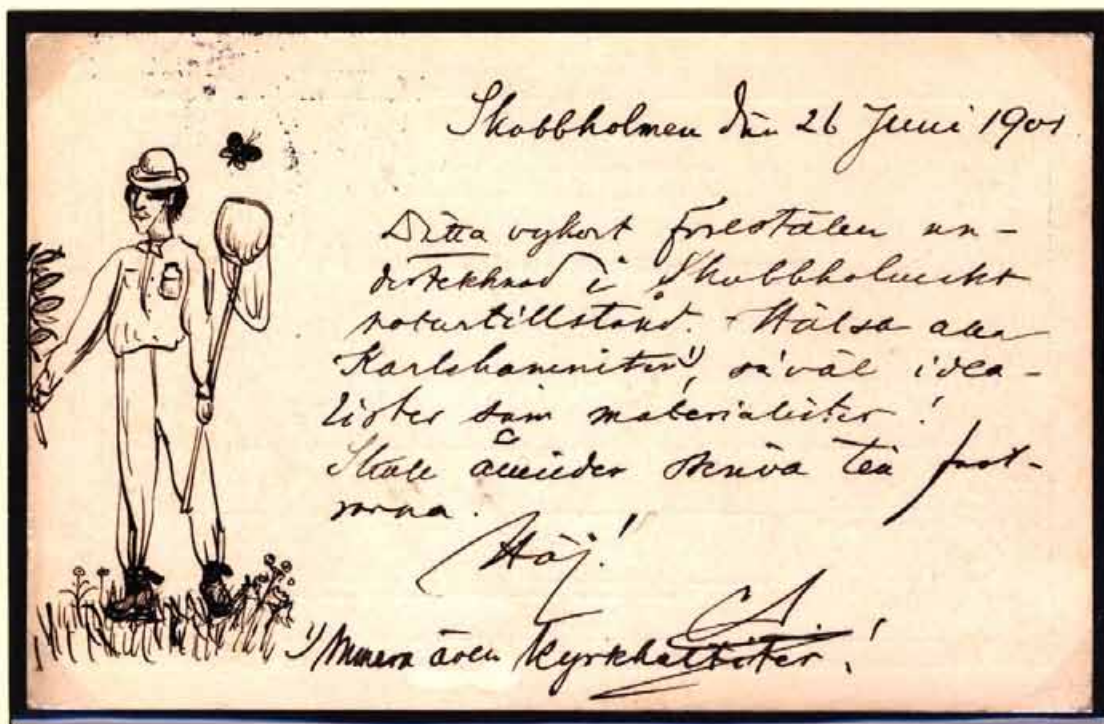 Skobbholmen den 26 Juni 1901
Detta vykort föreställer un-
dertekknad i Skobbholmskt
naturtillstånd. Hälsa alla
Karlshamniter¹⁾, såväl idea-
lister som materialister!
Skall ämnader skriva till fast-
rarna.
Häj!
A.
¹⁾ även Kyrkhultiter!